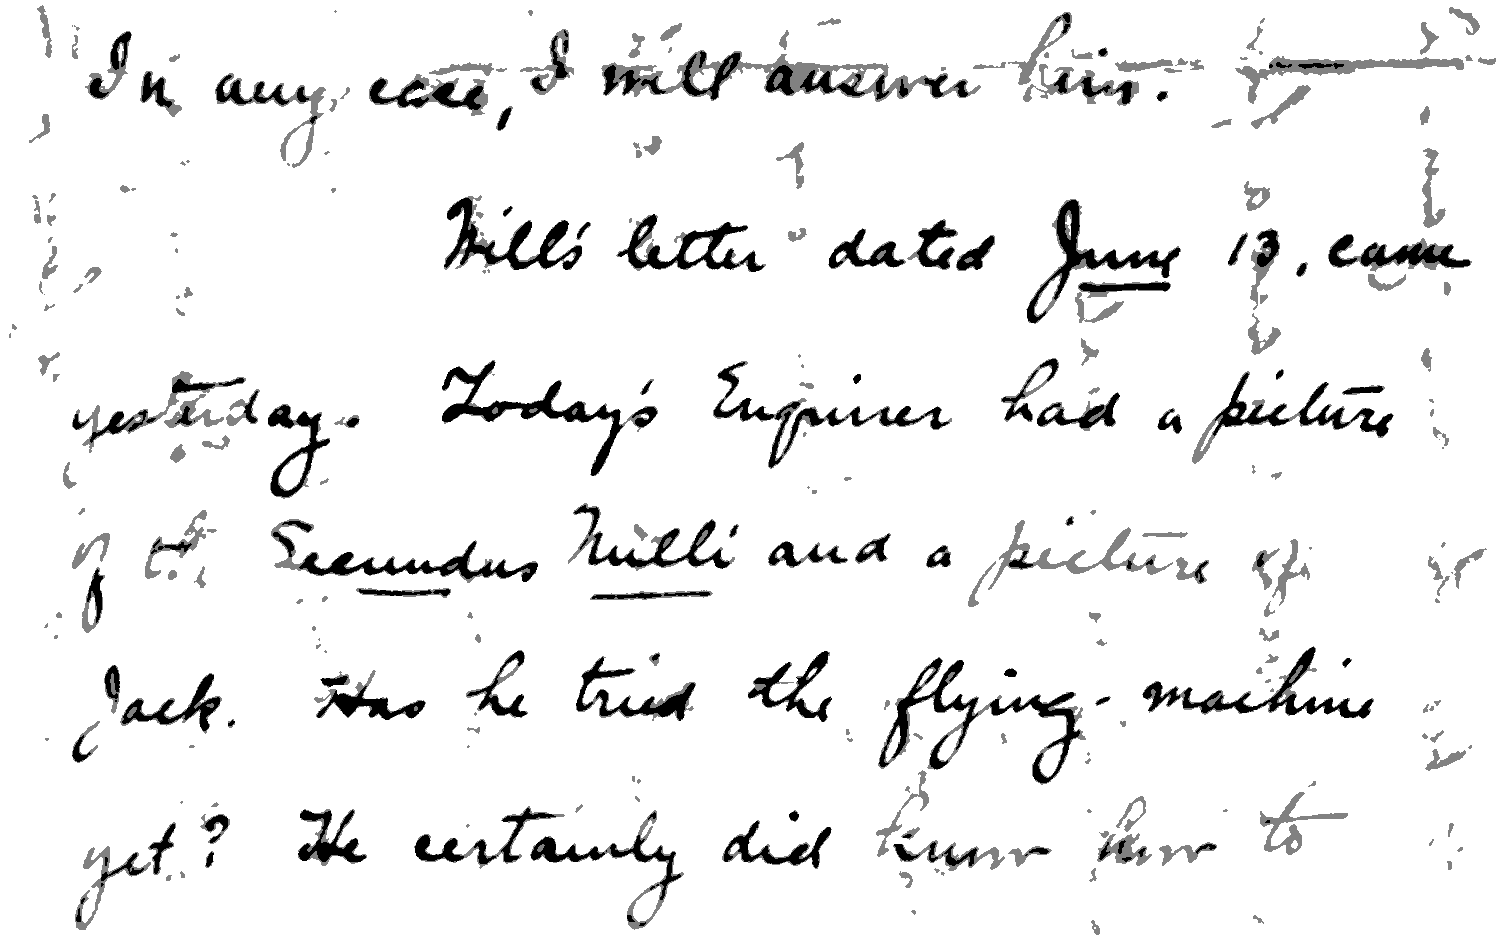 In any case, I will answer him.
Will's letter dated June 13, came
yesterday. Today's Enquirer had a picture
of the Secundus Nulli and a picture of
Jack. Has he tried the flying-machine
yet? He certainly did know how to